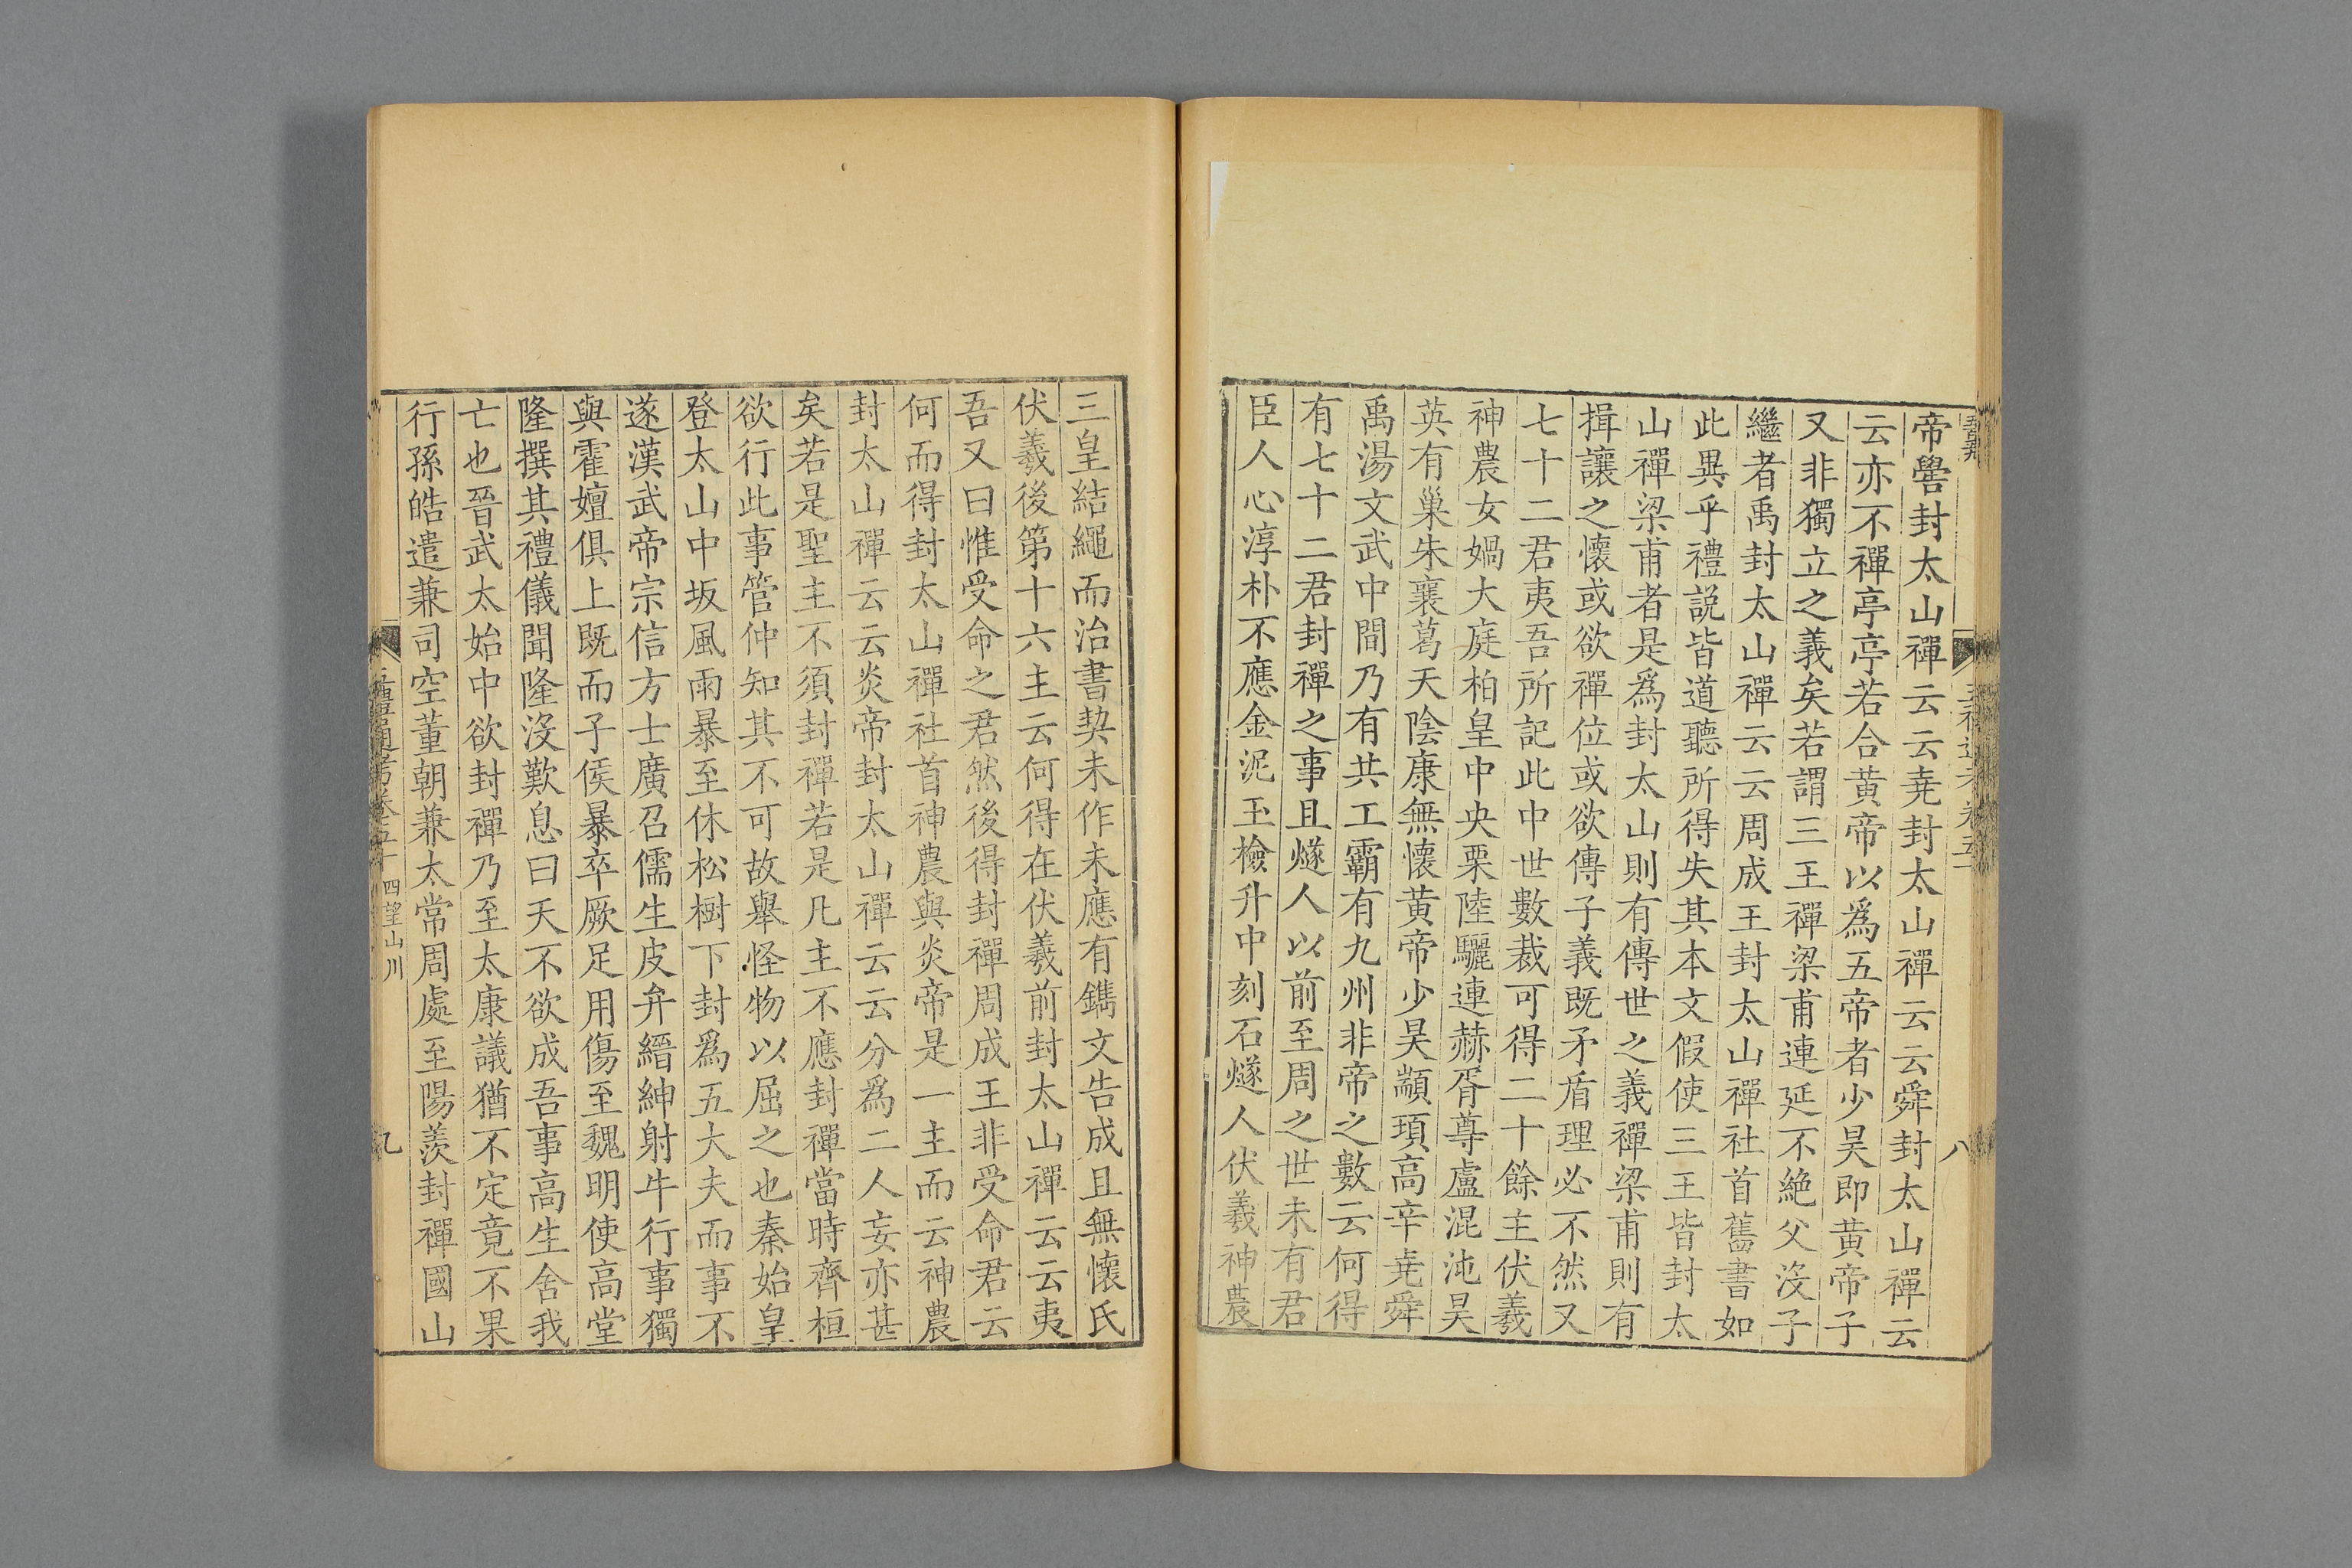 帝嚳封太山禪云云堯封太山禪云云舜封太山禪云
云亦不禪亭亭若合黄帝以爲五帝者少昊即黄帝子
又非獨立之義矣若謂三王禪梁甫連延不絶父没子
繼者禹封太山禪云云周成王封太山禪社首舊書如
此異乎禮説皆道聽所得失其本文假使三王皆封太
山禪梁甫者是爲封太山則有傳世之義禪梁甫則有
揖讓之懷或欲禪位或欲傳子義既矛盾理必不然又
七十二君夷吾所記此中世數裁可得二十餘主伏羲
神農女媧大庭柏皇中央栗陸驪連赫胥尊盧混沌昊
英有巢朱襄葛天陰康無懷黄帝少昊顓頊高辛堯舜
禹湯文武中間乃有共工霸有九州非帝之數云何得
有七十二君封禪之事且燧人以前至周之世未有君
臣人心淳朴不應金泥玉檢升中刻石燧人伏羲神農
八
三皇結繩而治書契未作未應有鐫文告成且無懷氏
伏羲後第十六主云何得在伏羲前封太山禪云云夷
吾又曰惟受命之君然後得封禪周成王非受命君云
何而得封太山禪社首神農與炎帝是一主而云神農
封太山禪云云炎帝封太山禪云云分爲二人妄亦甚
矣若是聖主不須封禪若是凡主不應封禪當時齊桓
欲行此事管仲知其不可故舉怪物以屈之也秦始皇
登太山中坂風雨暴至休松樹下封爲五大夫而事不
遂漢武帝宗信方士廣召儒生皮弁縉紳射牛行事獨
與霍嬗俱上既而子侯暴卒厥足用傷至魏明使高堂
隆撰其禮儀聞隆没歎息曰天不欲成吾事高生舍我
亡也晉武太始中欲封禪乃至太康議猶不定竟不果
行孫皓遣兼司空董朝兼太常周處至陽羨封禪國山
五禮通考卷五十 四望山川
九